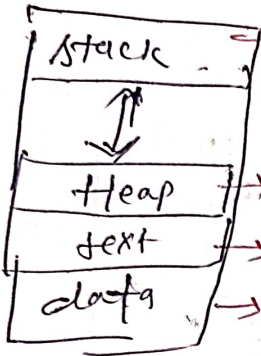 stack
Heap
text
data